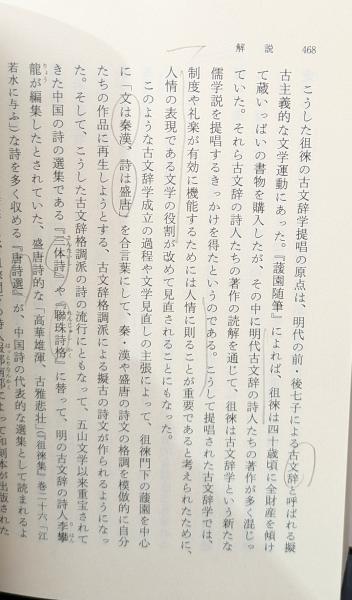 解説 468
こうした徂徠の古文辞学提唱の原点は、明代の前・後七子による古文辞と呼ばれる擬
古主義的な文学運動にあった。『蘐園随筆』によれば、徂徠は四十歳頃に全財産を傾け
て蔵いっぱいの書物を購入したが、その中に明代古文辞の詩人たちの著作が多く混じっ
ていた。それら古文辞の詩人たちの著作の読解を通じて、徂徠は古文辞学という新たな
儒学説を提唱するきっかけを得たというのである。こうして提唱された古文辞学では、
制度や礼楽が有効に機能するためには人情に則ることが重要であると考えられたために、
人情の表現である文学の役割が改めて見直されることにもなった。
このような古文辞学成立の過程や文学見直しの主張によって、徂徠門下の蘐園を中心
に「文は秦漢、詩は盛唐」を合言葉にして、秦・漢や盛唐の詩文の格調を模倣的に自分
たちの作品に再生しようとする、古文辞格調派による擬古の詩文が作られるようになっ
た。そして、こうした古文辞格調派の詩の流行にともなって、五山文学以来重宝されて
きた中国の詩の選集である『三体詩』や『聯珠詩格』に替って、明の古文辞の詩人李攀
龍が編集したとされていた、盛唐詩的な「高華雄渾、古雅悲壮」(『徂徠集』巻二十六「江
若水に与ふ」)な詩を多く収める『唐詩選』が、中国詩の代表的な選集として読まれるよ
によって和刻本が出版された